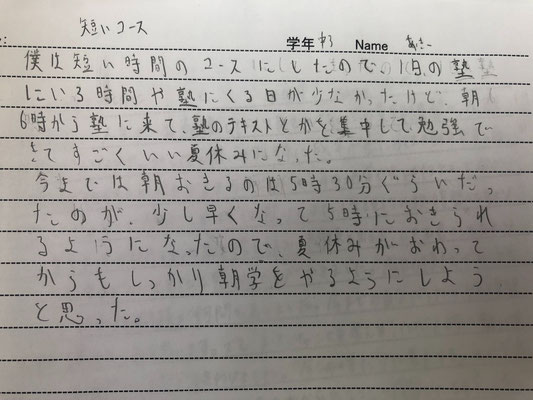 短いコース
学年 中3 Name あきー
僕は短い時間のコースにしたので、1日の塾
にいる時間や塾にくる日が少なかったけど、朝
6時から塾に来て、塾のテキストとかを集中して勉強で
きてすごくいい夏休みになった。
今までは朝おきるのは5時30分ぐらいだっ
たのが、少し早くなって5時におきられ
るようになったので、夏休みがおわって
からもしっかり朝学をやるようにしよう
と思った。